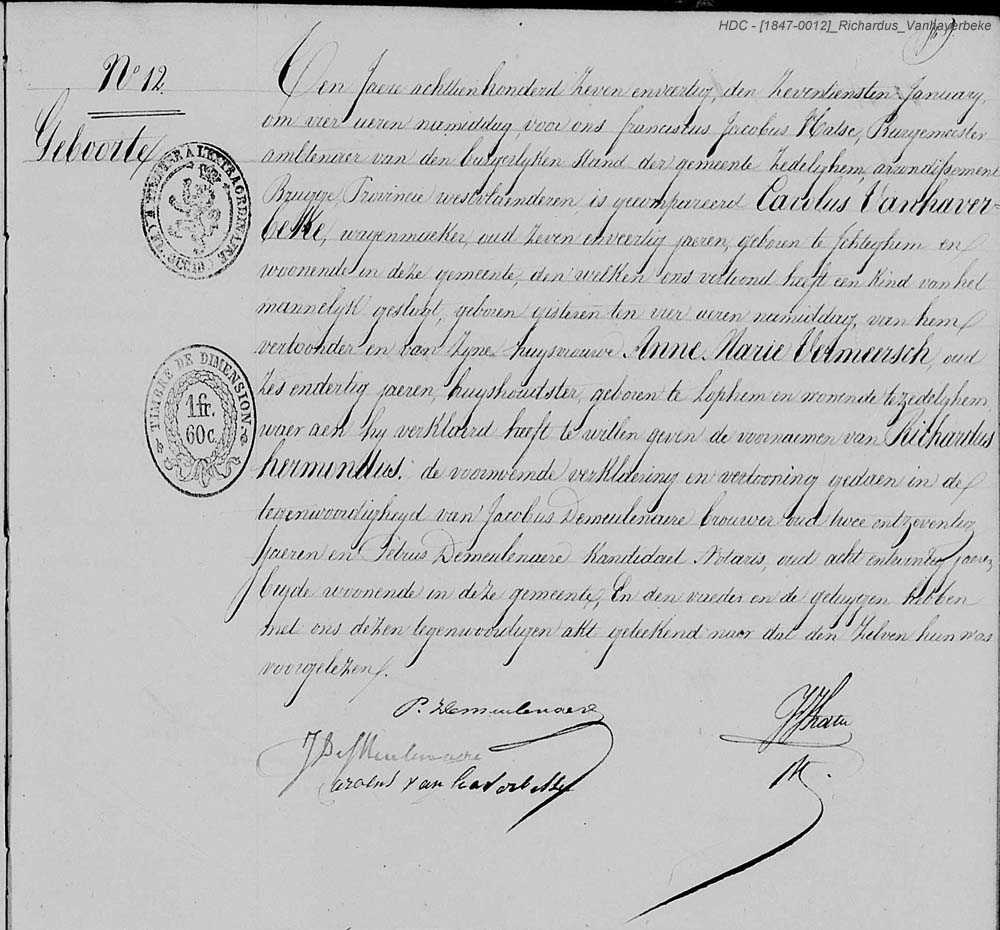 HDC - [1847-0012]_Richardus_Vanhaverbeke
N° 12
Geboorte
TIMBRE DE DIMENSION
1 fr.
60 c.
Ten Jaere achttien honderd Zeven en veertig, den Zeventiensten January,
om vier ueren namiddag, voor ons franciscus Jacobus Halse, Burgemeester
ambtenaer van den burgerlyken stand der gemeente Zedelghem, arrondissement
Brugge, Provincie westvlaenderen is gecompareerd Carolus Vanhaver-
beke, wagenmaker, oud Zeven en veertig jaeren, geboren te Ichteghem en
woonende in deze gemeente, den welken ons vertoond heeft een kind van het
mannelyk geslagt, geboren gisteren ten vier ueren namiddag, van hem
vertoonder en van zyne huysvrouwe Anne Marie Vermeersch, oud
Zes en dertig jaeren, huyshoudster, geboren te Lophem en woonende te zedelghem,
waer aen hy verklaerd heeft te willen geven de voornaemen van Richardus
hermindus. de voornoemde verklaering en vertooning gedaen in de
tegenwoordigheyd van Jacobus Demeulenaere brouwer oud twee en tzeventig
jaeren en Petrus Demeulenaere Kandidaet Notaris, oud acht en twintig jaeren,
beyde woonende in deze gemeente, En den vaeder en de getuygen hebben
met ons dezen tegenwoordigen akt geteekend naer dat den zelven hun was
voorgelezen.
P. Demeulenaere
J DeMeulenaere
Carolus van haverbeke